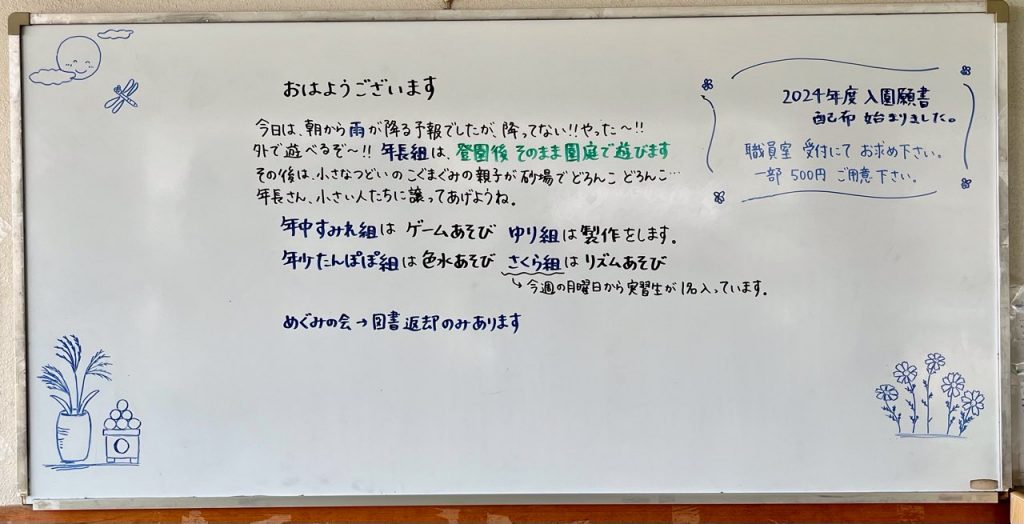 おはようございます
今日は、朝から雨が降る予報でしたが、降ってない!!やった〜!!
外で遊べるぞ〜!! 年長組は、登園後 そのまま園庭で遊びます
その後は、小さなつどいの こぐまぐみの親子が 砂場で どろんこ どろんこ…
年長さん、小さい人たちに譲ってあげようね。
年中すみれ組は ゲームあそび ゆり組は製作をします。
年少たんぽぽ組は色水あそび さくら組はリズムあそび
↳今週の月曜日から実習生が1名入っています。
めぐみの会→図書返却のみあります
2024年度 入園願書
配布 始まりました。
職員室 受付にて お求め下さい。
一部 500円 ご用意下さい。